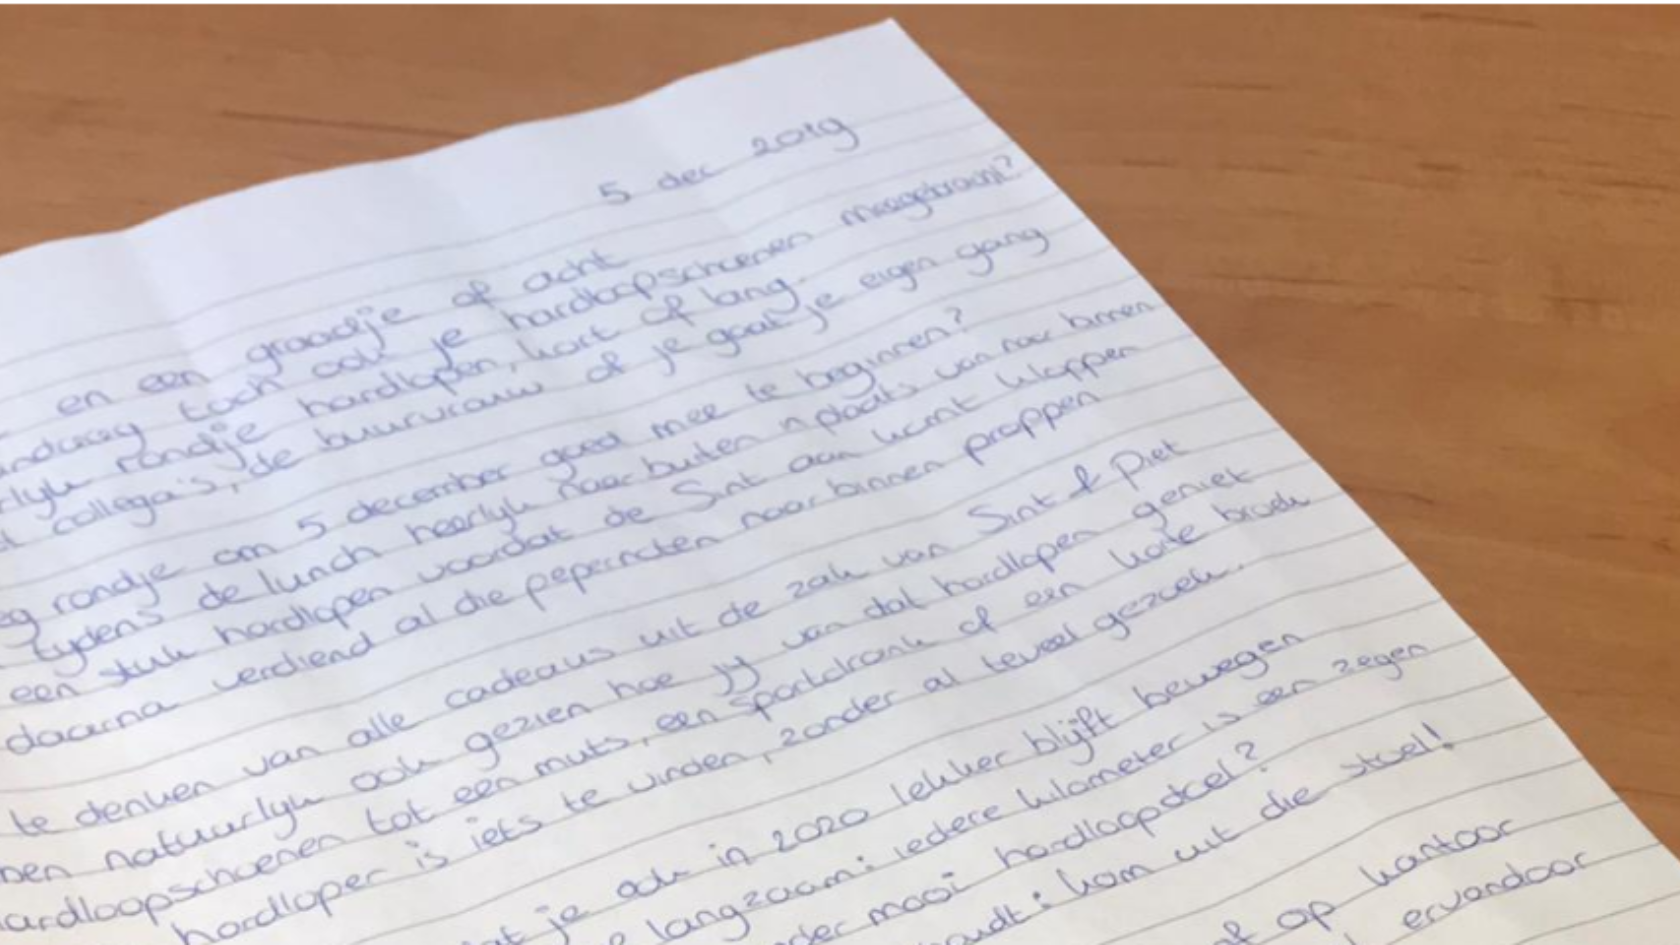 5 dec 2019
en een graadje of acht
toch ook je hardloopschoenen meegebracht?
rondje hardlopen, kort of lang.
collega's, de buurvrouw of je gaat je eigen gang
rondje om 5 december goed mee te beginnen?
tydens de lunch heerlyk naar buiten n plaats van naar binnen
een stuk hardlopen voordat de Sint aan komt kloppen
daarna verdiend al die pepernoten naar binnen proppen
te denken van alle cadeaus uit de zak van Sint & Piet
natuurlyk ook gezien hoe jy van dat hardlopen geniet
hardloopschoenen tot een muts, een sportdrank of een korte broek
hardloper is iets te vinden, zonder al teveel gezoek.
je ook in 2020 lekker blijft bewegen
langzaam: iedere kilometer is een zegen
mooi hardloopdoel?
kom uit die stoel!
op kantoor
ervandoor